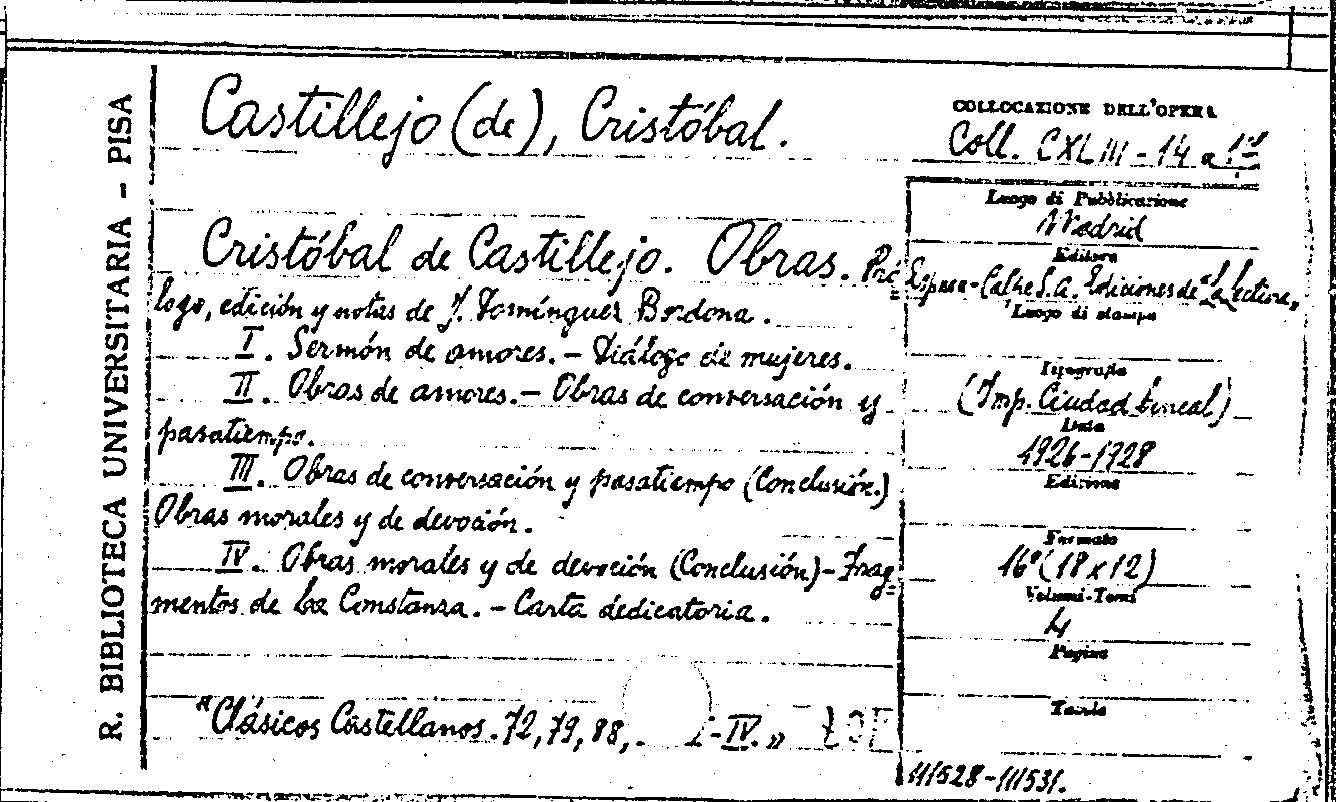 R. BIBLIOTECA UNIVERSITARIA - PISA
Castillejo (de), Cristóbal.
COLLOCAZIONE DELL'OPERA
Coll. CXLIII - 14 a
Cristóbal de Castillejo. Obras. Pró=
logo, edición y notas de J. Domínguez Bordona.
I. Sermón de amores. - Diálogo de mujeres.
II. Obras de amores. - Obras de conversación y
pasatiempo.
III. Obras de conversación y pasatiempo (Conclusión.)
Obras morales y de devoción.
IV. Obras morales y de devoción (Conclusión) - Frag=
mentos de La Constanza. - Carta dedicatoria.
"Clásicos Castellanos. 72, 79, 88, . I-IV."
Luogo di Pubblicazione
Madrid
Editore
Espasa-Calpe S.A. Ediciones de "La Lectura"
Luogo di stampa
Tipografia
(Imp. Ciudad Lineal)
Data
1926-1928
Edizione
Formato
16° (18 x 12)
Volumi-Tomi
4
Pagine
Tavole
111528-111531.